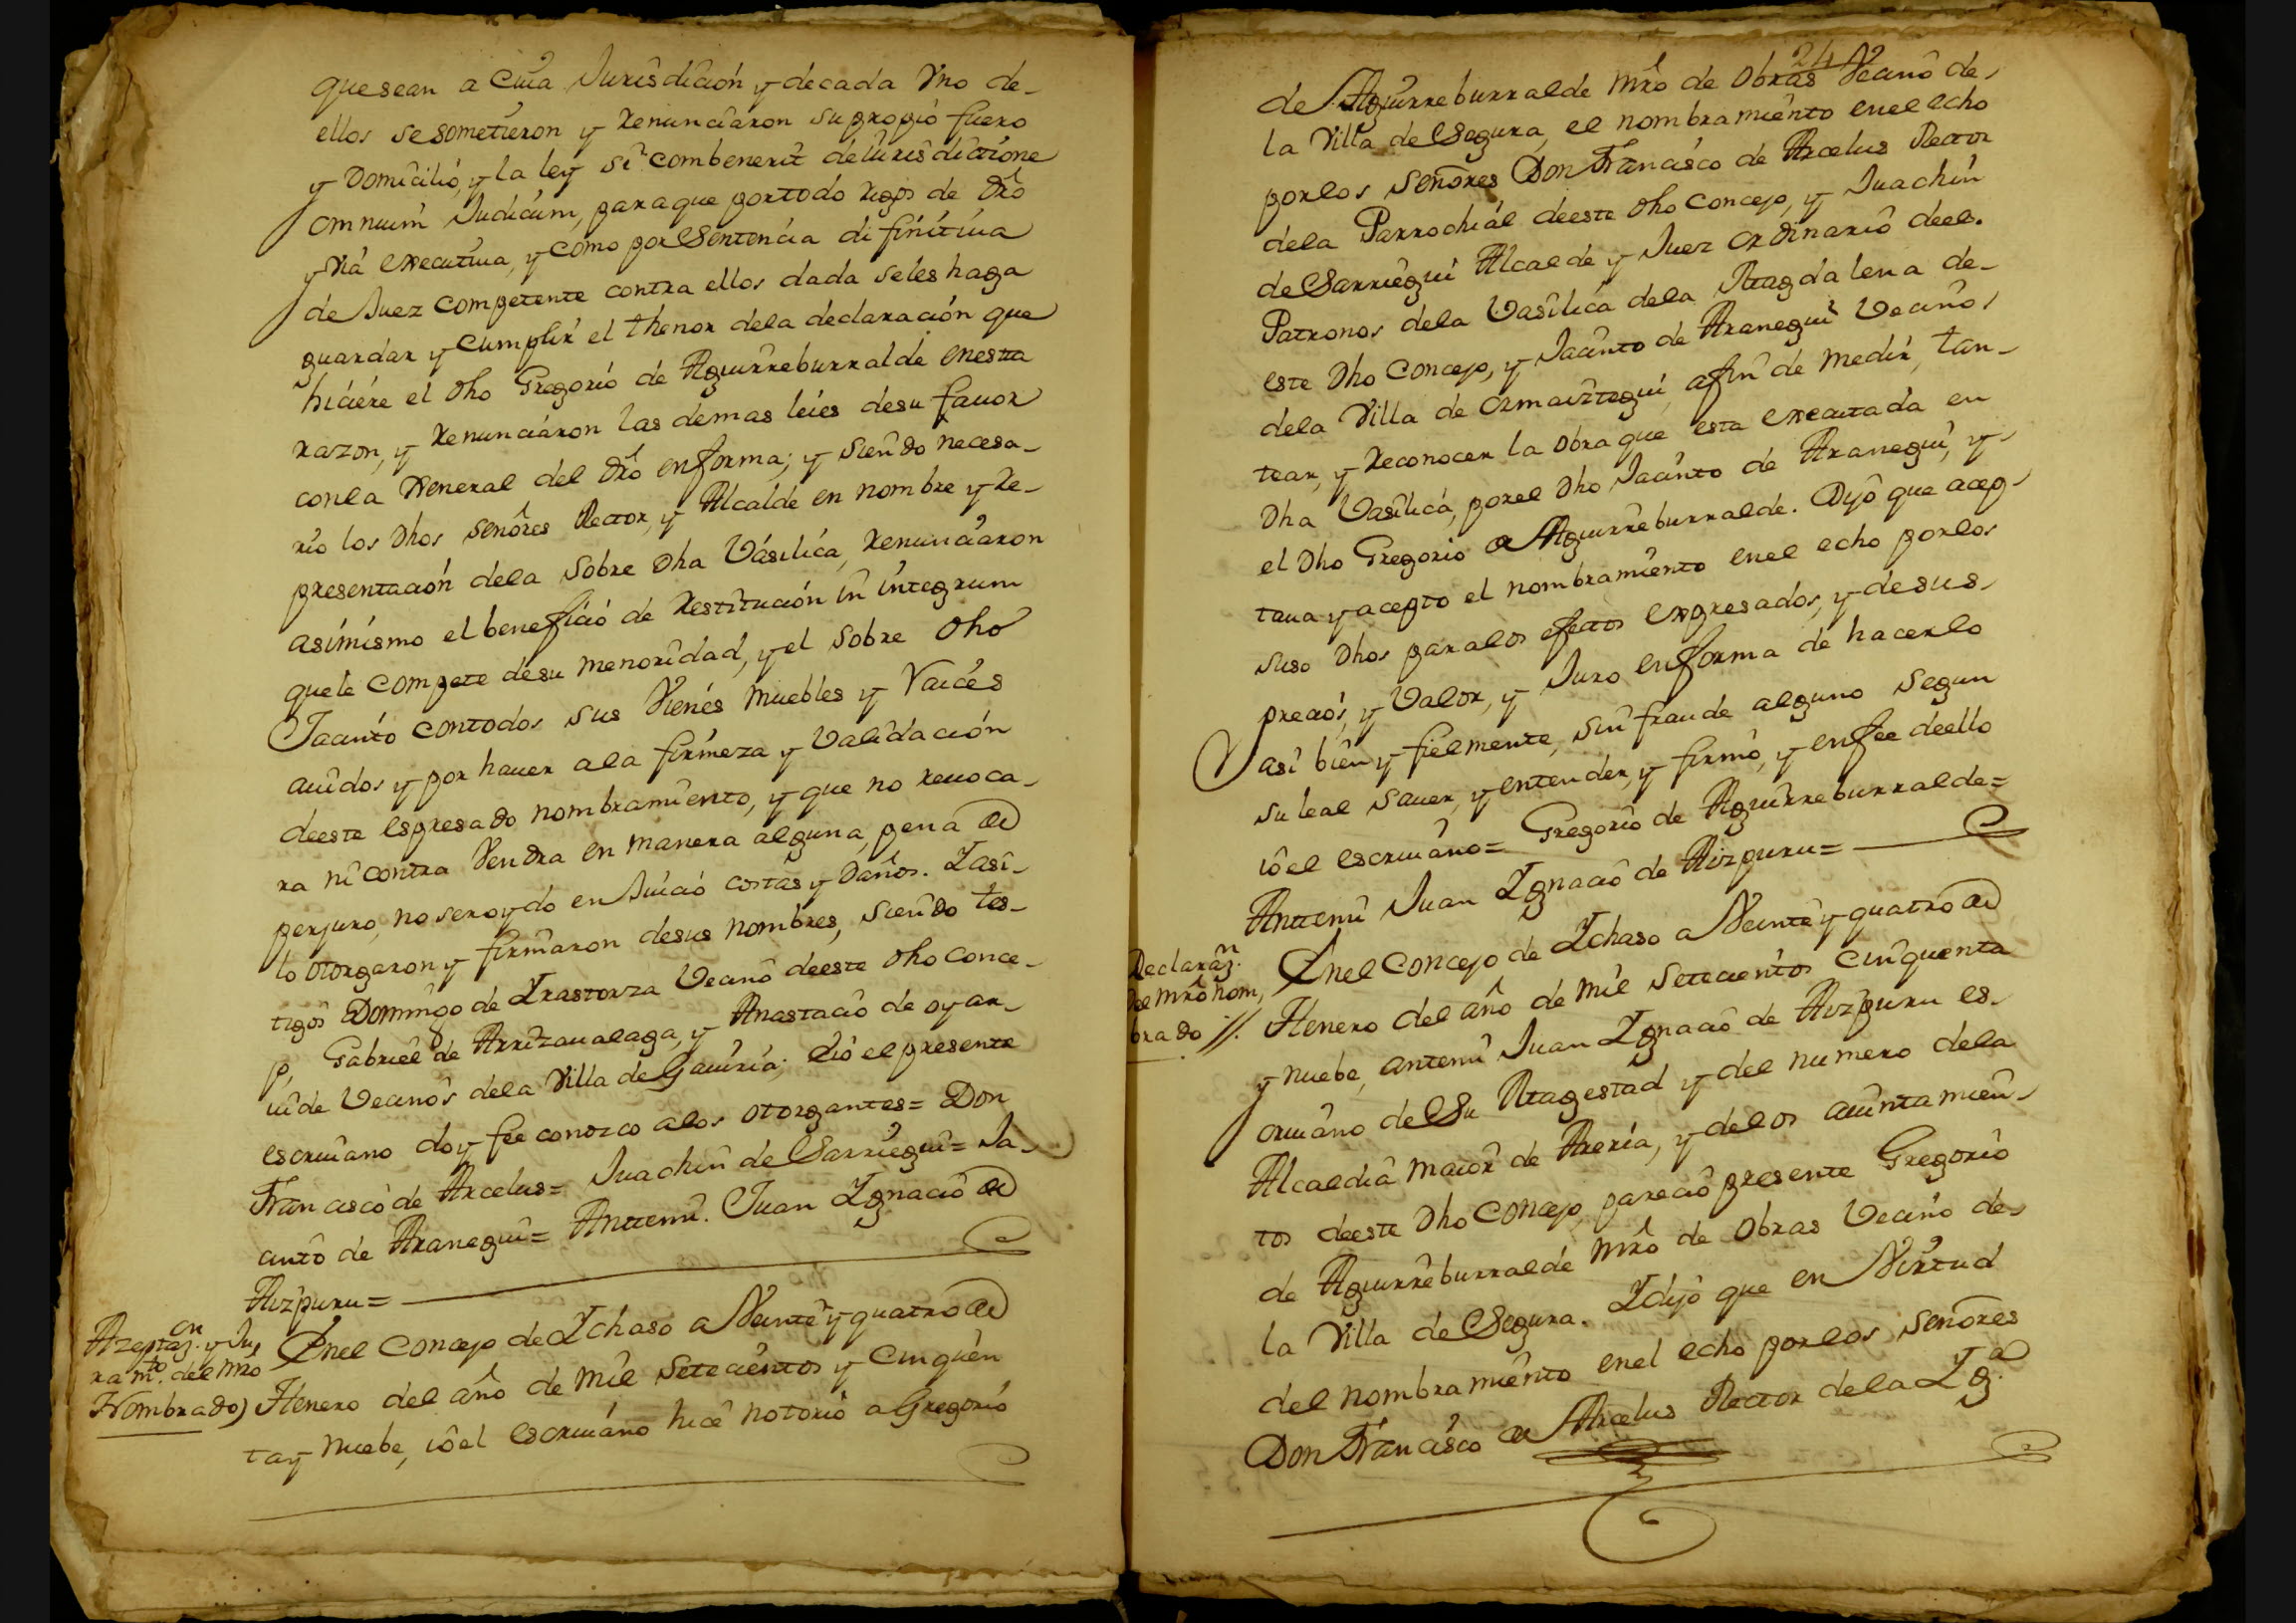 que sean a Cuia Jurisdicion y de cada Vno de
ellos se sometieron y Renunciaron su propio fuero
y Domicilio, y la ley si combenerit de iurisdictione
omnium Judicum, para que por todo rigor de dro
y via executiua, y como por Sentencia difinitiua
de Juez Competente contra ellos dada se les haga
guardar y cumplir el thenor dela declaracion que
hiciere el dho Gregorio de Aguirreburralde en esta
razon, y Renunciaron las demas leies de su fauor
con la General del dro en forma; y siendo necesa-
rio los dhos señores Rector, y Alcalde en nombre y Re-
presentacion dela Sobre dha Vasilica, Renunciaron
asimismo el beneficio de Restitucion in integrum
que le Compete de su menoridad, y el sobre dho
Jacinto con todos sus Vienes muebles y Raices
auidos y por hauer a la firmeza y Validacion
de este espresado nombramiento, y que no reuoca-
ra ni contra Vendra en manera alguna, pena de
perjuro, no ser oydo en Juicio costas y Daños. I asi-
lo otorgaron y firmaron de sus nombres, siendo tes-
tigos Domingo de Irastorza Vecino de este dho Conce-
jo, Gabriel de Arrizaualaga, y Anastacio de oyar-
uide Vecinos dela Villa de Gauiria; e io el presente
escriuano doy fee conozco a los otorgantes= Don
Francisco de Arcelus= Juachin de Sarriegui= Ja-
cinto de Aranegui= Antemi. Juan Ignacio de
Aizpuru=
Azeptaz.on y Ju
ram.to del Mro
Nombrado)
En el Concejo de Ichaso a Veinte y quatro de
Henero del año de mil setecientos y Cinquen
ta y nuebe, io el escriuano hice notorio a Gregorio
242
de Aguirreburralde Mro de Obras Vecino de
la Villa de Segura, el nombramiento en el echo
por los señores Don Francisco de Arcelus Rector
dela Parrochial de este dho Concejo, y Juachin
de Sarriegui Alcalde y Juez ordinario de el.
Patronos dela Vasilica dela Magdalena de-
este dho Concejo, y Jacinto de Aranegui Vecino
dela Villa de Ormaiztegui, a fin de medir, tan-
tear, y Reconocer la Obra que esta executada en
dha Vasilica, por el dho Jacinto de Aranegui, y
el dho Gregorio de Aguirreburralde. Dijo que acep-
taua y acepto el nombramiento en el echo por los
suso dhos para los efectos expresados, y de sus
precios, y Valor, y Juro en forma de hacerlo
asi bien y fielmente, sin fraude alguno segun
su leal sauer, y entender, y firmo, y en fee de ello
io el escriuano= Gregorio de Aguirreburralde=
Antemi Juan Ignacio de Aizpuru=
Declaraz.n
del Mro nom,
brado //.
En el Concejo de Ichaso a Veinte y quatro de
Henero del año de mil setecientos Cinquenta
y nuebe, antemi Juan Ignacio de Aizpuru es-
criuano de Su Magestad y del numero dela
Alcaldia maior de Areria, y delos aiuntamien-
tos de este dho Concejo parecio presente Gregorio
de Aguirreburralde Mro de Obras Vecino de
la Villa de Segura. I dijo que en Virtud
del nombramiento en el echo por los señores
Don Francisco de Arcelus Rector de la Igª